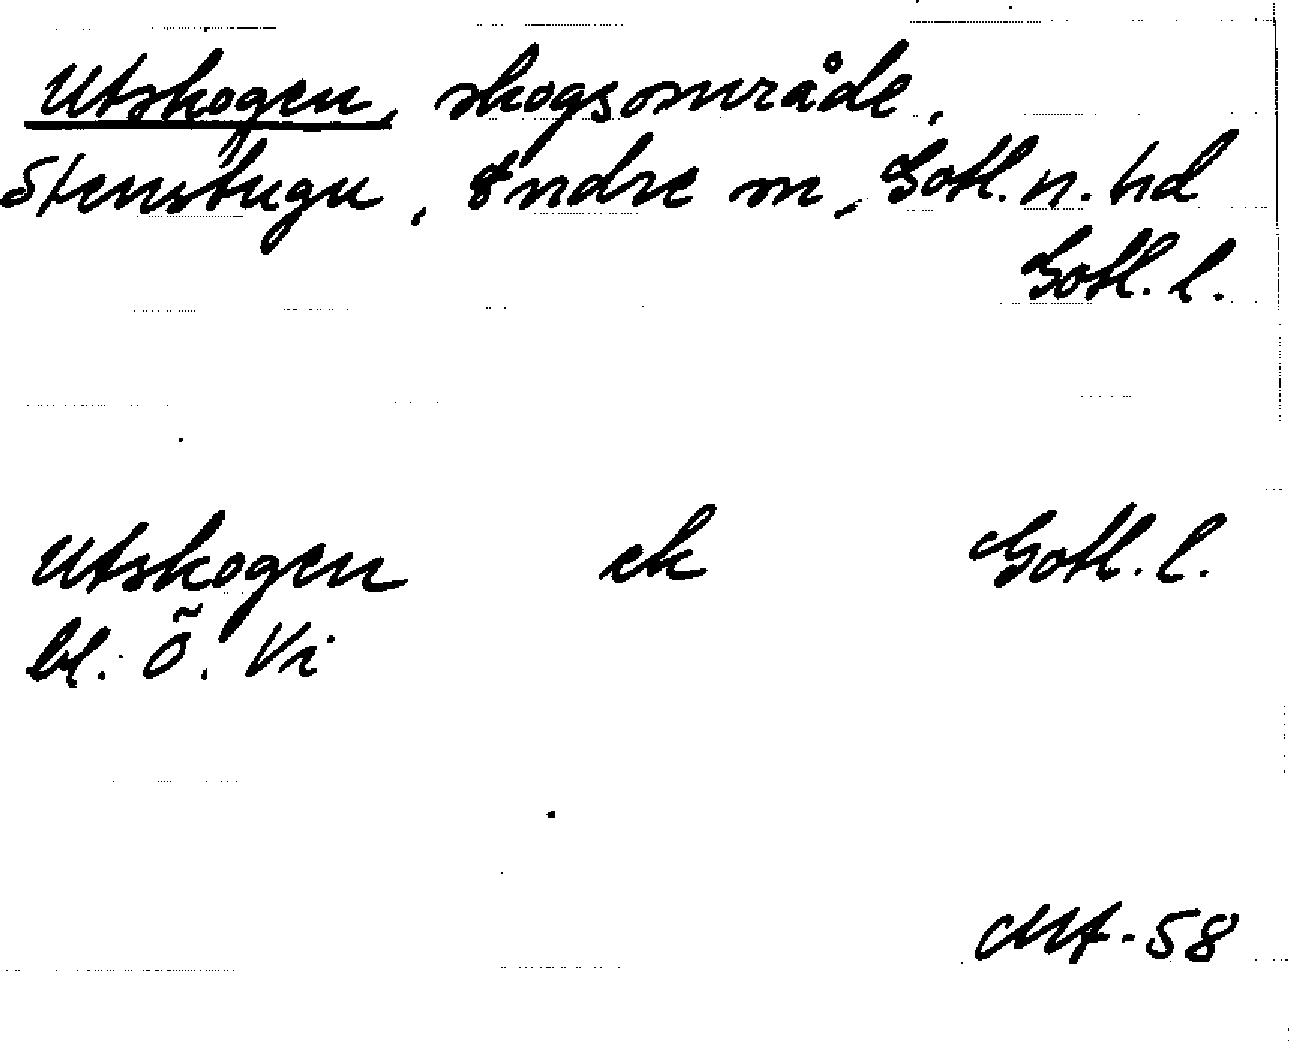 Utskogen, skogsområde,
Stenstugu, Endre sn, Gotl. n. hd
Gotl. l.
Utskogen ek Gotl. l.
bl. Ö. Vi
-58